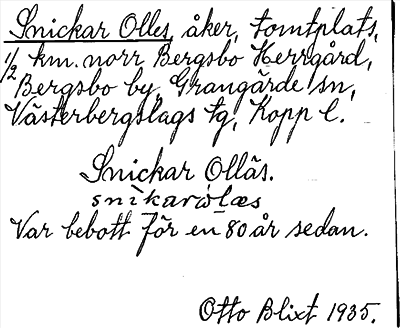 Snickar Olles, åker, tomtplats,
1/2 km. norr Bergsbo Herrgård,
Bergsbo by, Grangärde sn,
Västerbergslags tg, Kopp l.
Snickar Olläs.
snikarolæs
Var bebott för en 80 år sedan.
Otto Blixt 1935.